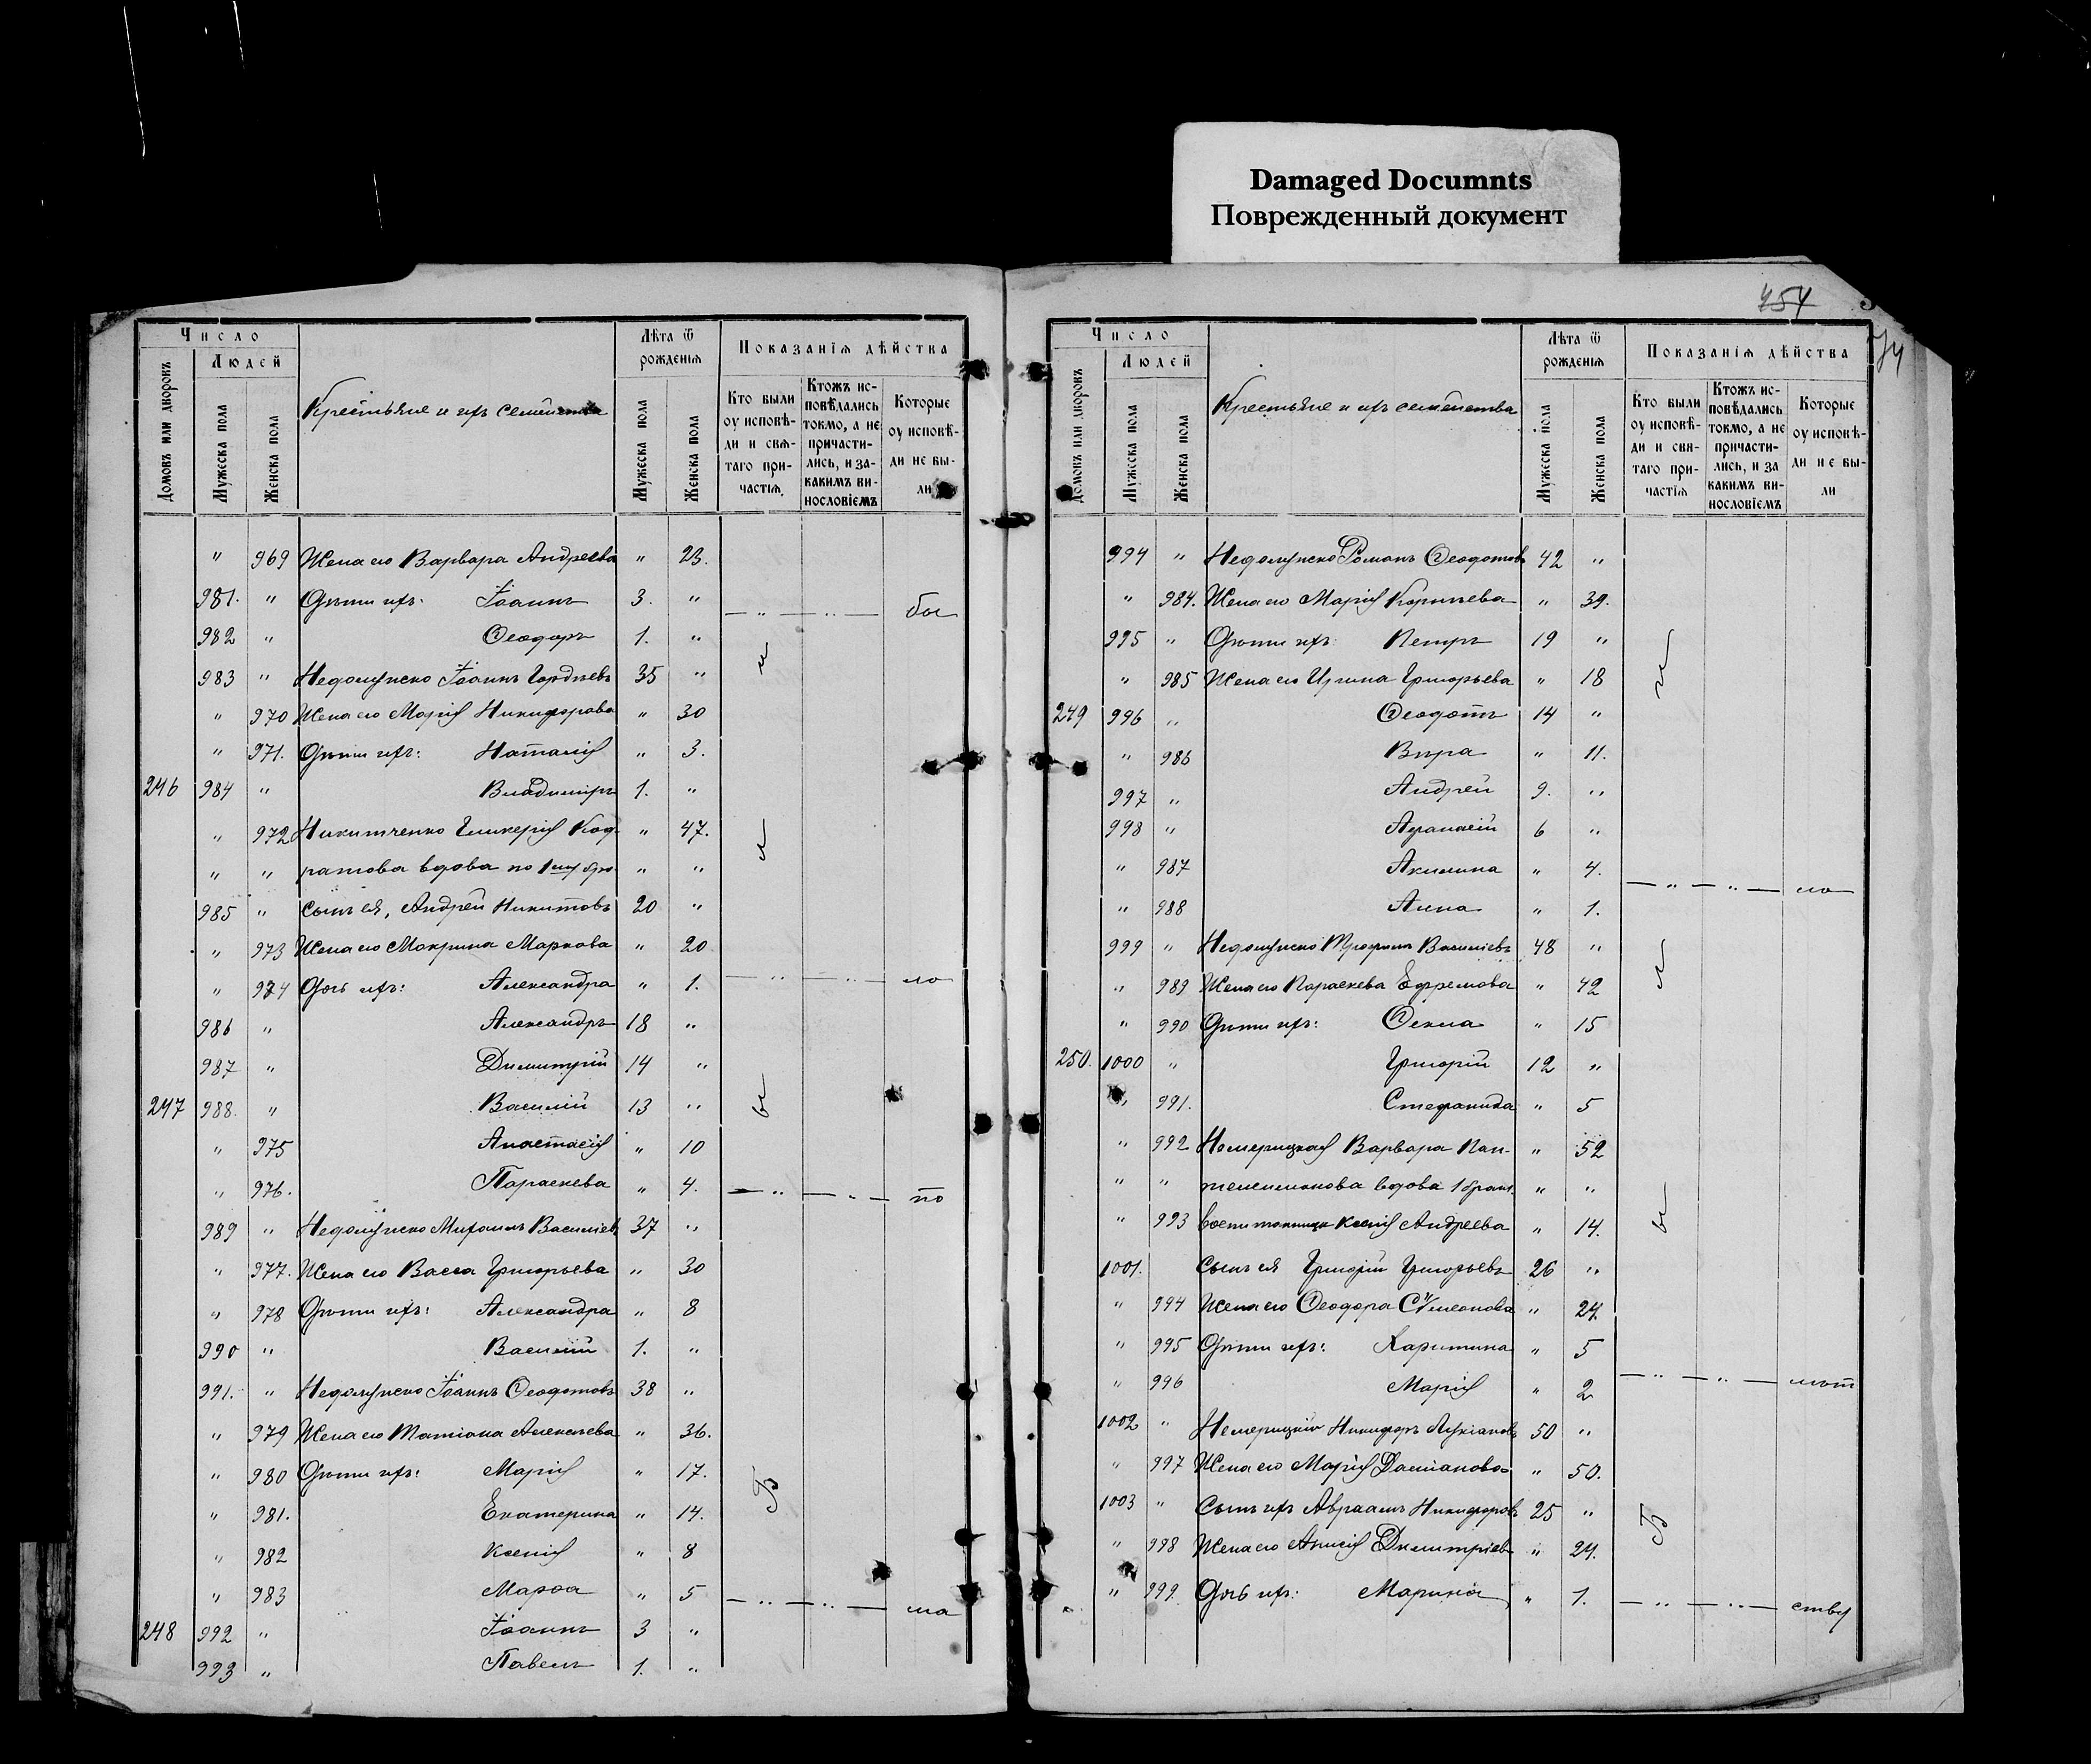 Damaged Documnts
Поврежденный документ
454
Число
Людей
Домовъ или дворовъ
Мужеска пола
Женска пола
Крестьяне и ихъ семейства
Лѣта ѿ рожденїѧ
Мужеска пола
Женска пола
Показанїѧ дѣйства
Кто были оу исповѣ-ди и свѧ-таго при-частїѧ
Ктожъ ис-повѣдались токмо, а не причасти-лись, и за-какимъ ви-нословїемъ
Которые оу исповѣ-ди не бы-ли
" 969 Жена его Варвара Андреева " 23.
981. " Дѣти ихъ: Іоаннъ 3. " — " — " — бы
982 " Ѳеодоръ 1. "
983 " Недолужко Іоаннъ Гордѣевъ 35 "
" 970 Жена его Марія Никифорова " 30
" 971. Дѣти ихъ: Наталія " 3.
246 984 " Владиміръ 1. "
" 972 Никитченко Гликерія Код- " 47.
" " ратова вдова по 1му бра. " "
985 " Сынъ ея, Андрей Никитовъ 20 "
" 973 Жена его Макрина Маркова " 20
" 974 Дочь ихъ: Александра " 1. — " — " — ло
986 " Александръ 18 "
987 " Димитрій 14 "
247 988. " Василій 13 "
" 975 Анастасія " 10
" 976. Параскева " 4. — " — " — по
989 " Недолужко Михаилъ Василіевъ 37 "
" 977. Жена его Васса Григорьева " 30
" 978 Дѣти ихъ: Александра " 8
990 " Василій 1. "
991. " Недолужко Іоаннъ Ѳеодотовъ 38 "
" 979 Жена его Татіана Алексѣева " 36.
" 980 Дѣти ихъ: Марія " 17.
" 981. Екатерина " 14.
" 982 Ксенія " 8
" 983 Марѳа " 5 — " — " — ма
248 992 " Іоаннъ 3 "
993 " Павелъ 1. "
Число
Людей
Домовъ или дворовъ
Мужеска пола
Женска пола
Крестьяне и ихъ семейства
Лѣта ѿ рожденїѧ
Мужеска пола
Женска пола
Показанїѧ дѣйства
Кто были оу исповѣ-ди и свѧ-таго при-частїѧ
Ктожъ ис-повѣдались токмо, а не причасти-лись, и за какимъ ви-нословїемъ
Которые оу исповѣ-ди не бы-ли
994 " Недолужко Романъ Ѳеодотовъ 42 "
" 984. Жена его Марія Корнѣева " 39.
995 " Дѣти ихъ: Петръ 19 "
" 985 Жена его Ирина Григорьева " 18
249 996 " Ѳеодотъ 14 "
" 986 Вѣра " 11.
997 " Андрей 9. "
998 " Аѳанасій 6 "
" 987 Акилина " 4. — " — " — ло
" 988 Анна " 1.
999 " Недолужко Трофимъ Василіевъ 48 "
" 989 Жена его Параскева Ефремова " 42
" 990 Дѣти ихъ: Ѳекла " 15
250. 1000 " Григорій 12 "
" 991. Стефанида " 5
" 992 Немерицкая Варвара Пан- " 52
" " телеимонова вдова 1 брак. " "
" 993 воспитанница Ксенія Андреева " 14.
1001. Сынъ ея Григорій Григорьевъ 26 "
" 994 Жена его Ѳеодора Сѵмеонова " 24.
" 995 Дѣти ихъ: Харитина " 5
" 996 Марія " 2 — " — " — лѣт
1002 " Немерицкій Никифоръ Лукіановъ 50 "
" 997 Жена его Марія Даміанова " 50.
1003 " Сынъ ихъ Авраамъ Никифоровъ 25 "
" 998 Жена его Анисія Димитріев " 24.
" 999. Дочь ихъ: Марина " 1. — " — " — ству